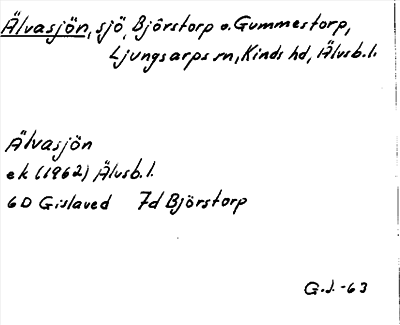 Älvasjön, sjö, Björstorp o. Gummestorp,
Ljungsarps sn, Kinds hd, Älvsb.l.
Älvasjön
ek (1962) Älvsb.l.
6D Gislaved 7d Björstorp
G.J. -63